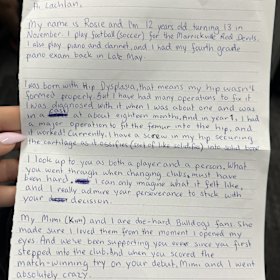 Hi Lachlan,
My name is Rosie and I'm 12 years old turning 13 in
November. I play football (soccer) for the Marrickville Red Devils.
I also play piano and clarinet, and I had my fourth grade
piano exam back in Late May.
I was born with Hip Dysplasia, that means my hip wasn't
formed properly. But I have had many operations to fix it
I was diagnosed with it when I was about one and was
in a at about eighteen months. And in year 1, I had
a major operation to fit the femur into the hip, and
it worked! Currently, I have a screw in my hip securing
the cartilage as it ossifies (sort of like solidifies) into solid bone
I look up to you as both a player and a person. What
you went through when changing clubs, must have
been hard. I can only imagine what it felt like,
and I really admire your perseverance to stick with
your decision.
My Mimi (Kim) and I are die-hard Bulldogs fans. She
made sure I loved them from the moment I opened my
eyes. And we've been supporting you ever since you first
stepped into the club. And when you scored the
match-winning try on your debut, Mimi and I went
absolutely crazy.